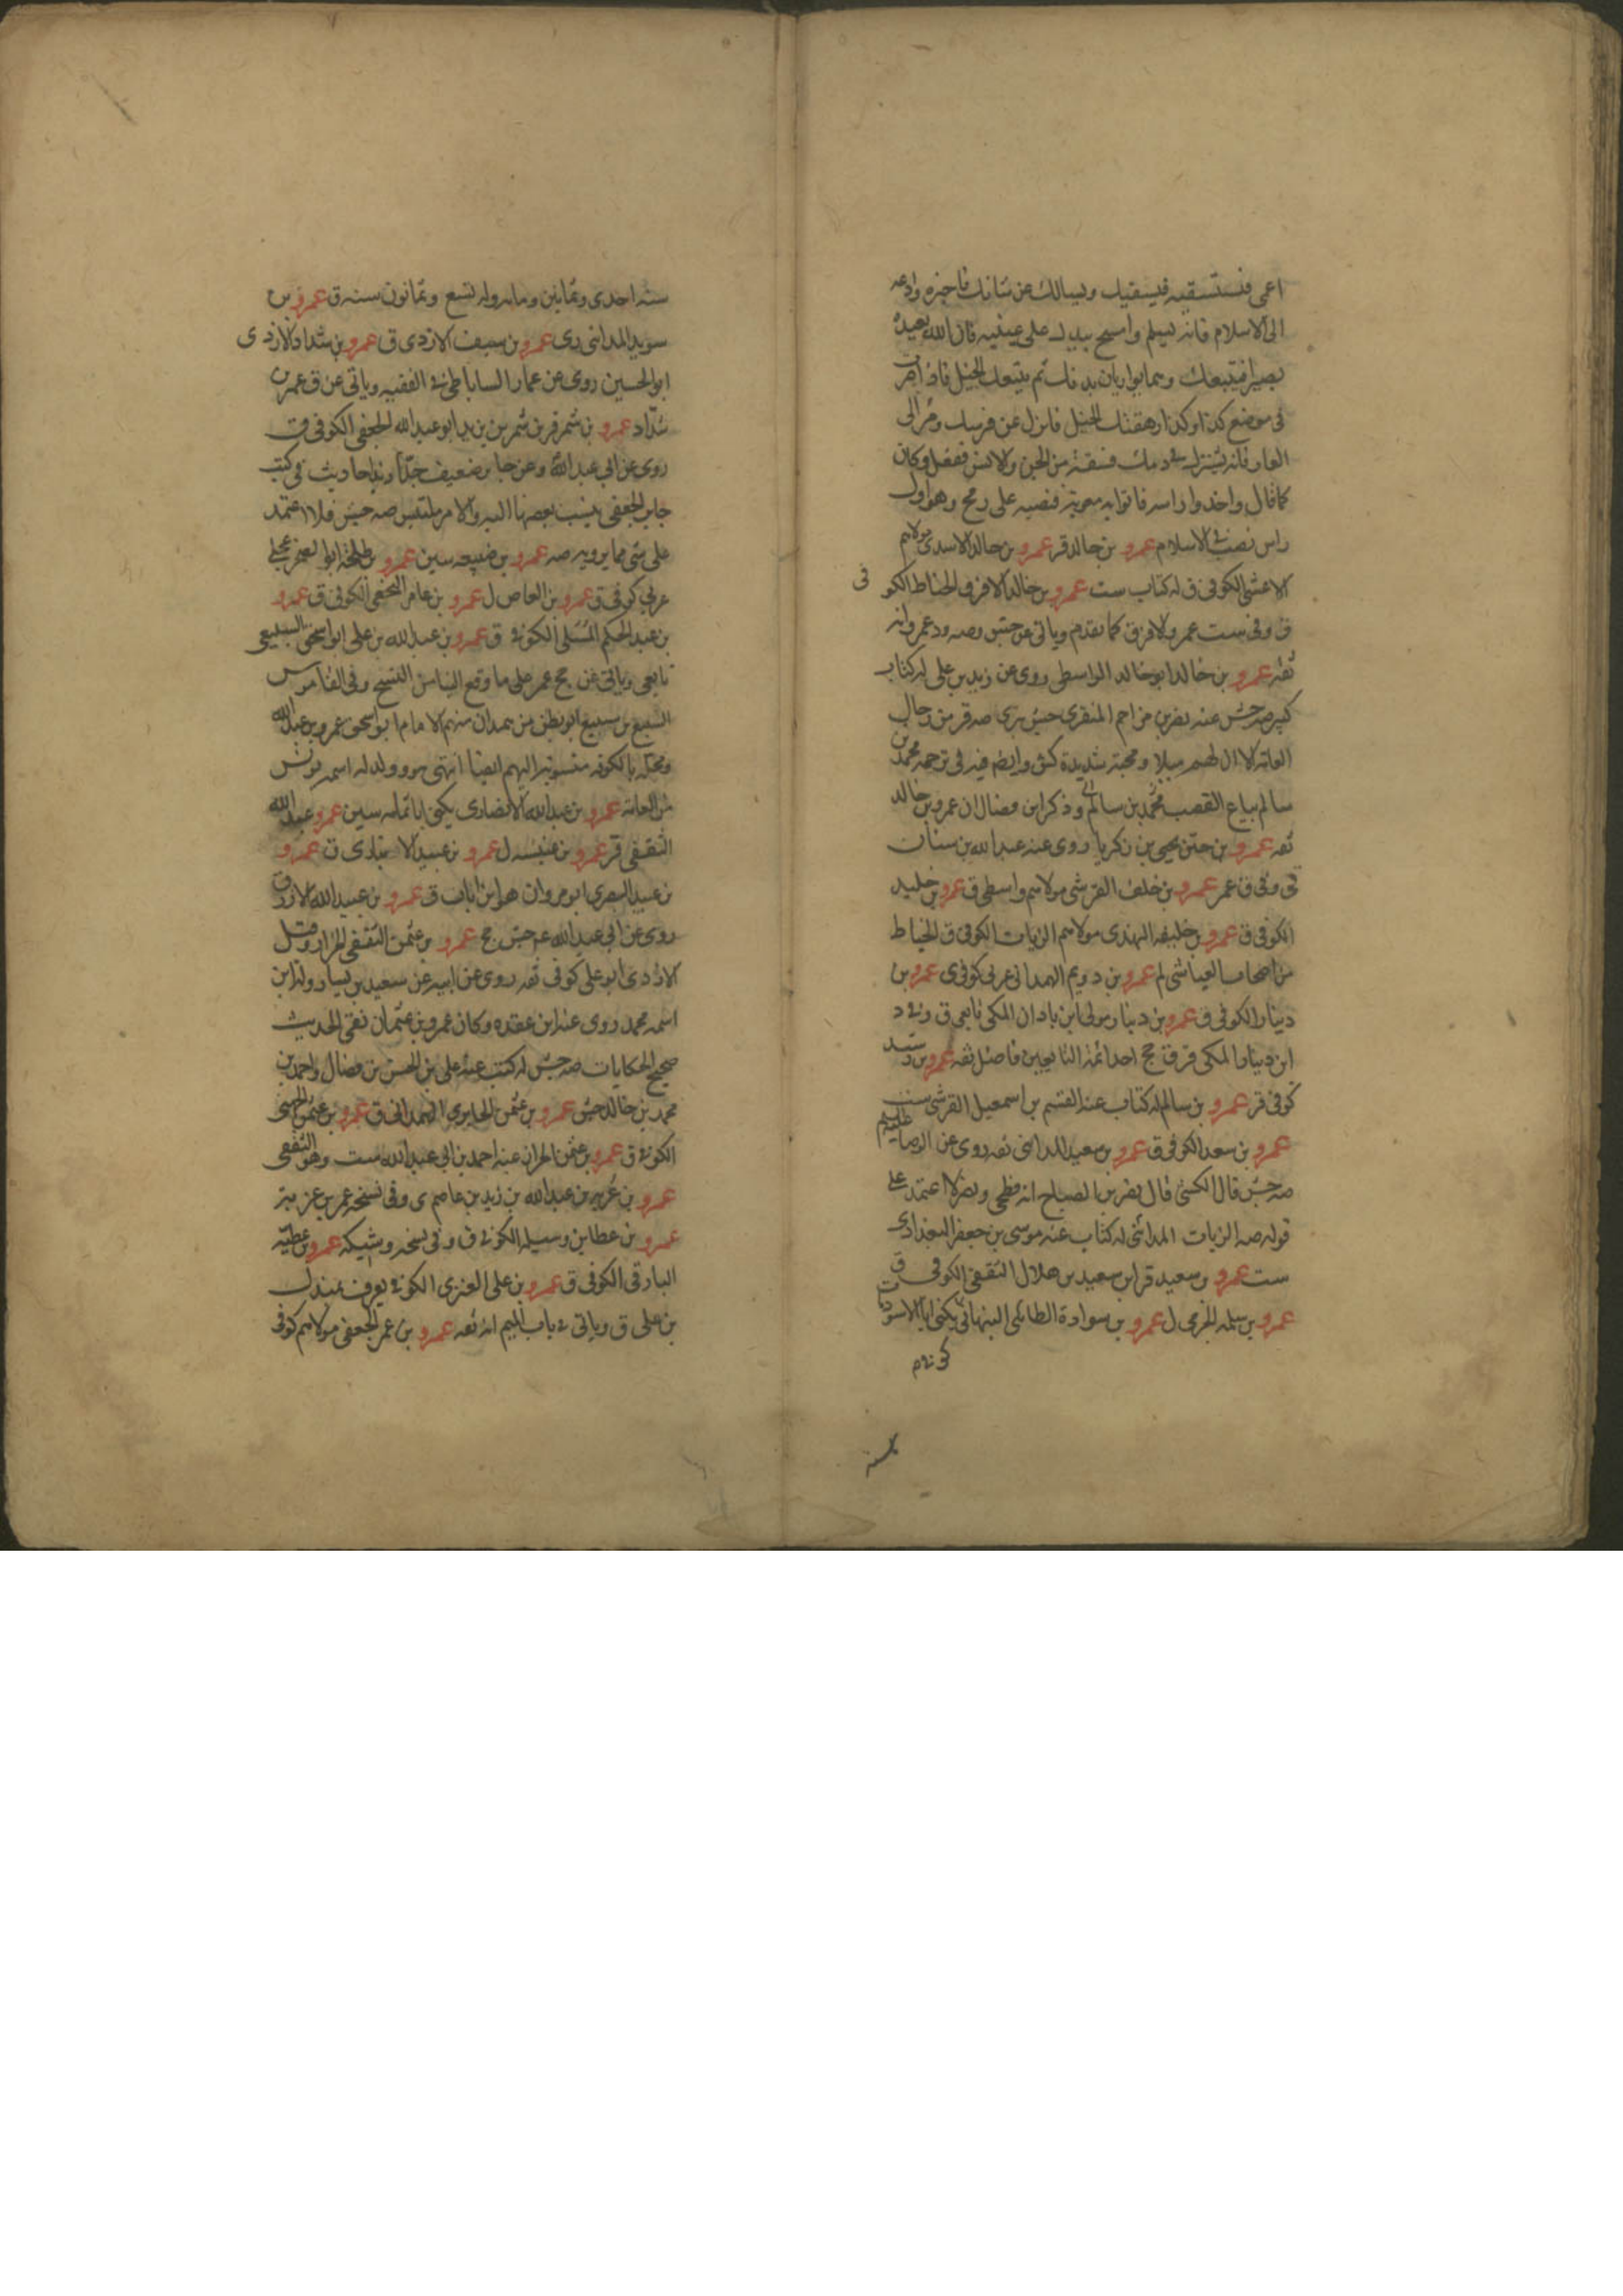 اعمى فتستسقيه فيسقيك ويسالك عن شانك فاخبره وادعه
الى الاسلام فانه يسلم وامسح بيدك على عينيه فان الله يعيده
بصيرا فيتبعك وهما يواريان بدنك ثم يتبعك الخيل فاذا صرت
فى موضع كذا وكذا رهقتك الخيل فانزل عن فرسك ومر الى
الغار فانه يشترك فى دمك فسقة من الجن والانس ففعل وكان
كما قال واخذوا راسه فاتوا به معوية فنصبه على رمح وهو اول
راس نصب فى الاسلام عمرو بن خالد قر عمرو بن خالد الاسدى مولاهم
الاعشى الكوفى ق له كتاب ست عمرو بن خالد الافرق الحناط الكوفى
ق وفى ست عمر والافرق كما تقدم وياتى عن جش وصه ود عمر وانه
ثقه عمرو بن خالد ابو خالد الواسطى روى عن زيد بن على له كتاب
كبير جش عنه نصر بن مزاحم المنقرى جش بترى صه قر من رجال
العامة الا ان لهم ميلا ومحبة شديدة كش وايضا فيه فى ترجمة محمد بن
سالم بياع القصب محمد بن سالم وذكر ابن فضال ان عمرو بن خالد
ثقه عمرو بن يحيى بن زكريا روى عنه عبد الله بن سنان
وفى ق عمر عمرو بن خلف القرشى مولاهم واسطى ق عمرو بن خليد
الكوفى ق عمرو بن خليفه الهندى مولاهم الزيات الكوفى ق الخياط
من اصحاب العياشى لم عمرو بن دويم الهمدانى عربى كوفى ى عمرو بن
دينار الكوفى ق عمرو بن دينار مولى ابن باذان المكى تابعى ق وفى د
ابن دينار المكى قر ق جح احد ائمة التابعين فاضل ثقه عمرو بن رشيد
كوفى قر عمرو بن سالم له كتاب عنه القسم بن اسمعيل القرشى ست
عمرو بن سعد الكوفى ق عمرو بن سعيد المداينى ثقه روى عن الرضا عليه السلام
صه جش قال الكشى قال نصر بن الصباح انه فطحى ونصر لا اعتمد على
قوله صه الزيات المداينى له كتاب عنه موسى بن جعفر البغدادى
ست عمرو بن سعيد قر ابن سعيد بن هلال الثقفى الكوفى ق
عمرو بن سلمه الجرمى ل عمرو بن سوادة الطائى النبهانى يكنى ابا الاسود مات
سنه احدى وثمانين ومايه وله تسع وثمانون سنه ق عمرو بن
سويد المدائنى رى عمرو بن سيف الازدى ق عمرو بن شداد الازدى
ابو الحسين روى عن عمار الساباطى فى الفقيه وياتى عن ق عمر بن
شداد عمرو بن شمر قر بن شمر بن يزيد ابو عبد الله الجعفى الكوفى ق
روى عن ابى عبد الله وعن جابر ضعيف جدا زيد احاديث فى كتب
جابر الجعفى ينسب بعضها اليه والامر ملتبس صه جش فلا اعتمد
على شى مما يرويه صه عمرو بن ضبيعه سين عمرو بن طلحة ابو الصخر عجلى
عربى كوفى ق عمرو بن العاص ل عمرو بن عامر النخعى الكوفى ق عمرو
بن عبد الحكم المسلى الكوفى ق عمرو بن عبد الله بن على ابو اسحق السبيعى
تابعى وياتى عن جح عمر على ما وقع الناس النسخ وفى القاموس
السبيع بن سبيع ابو بطن من همدان منهم الامام ابو اسحق عمرو بن عبد الله
ومحلة بالكوفه منسوبة اليهم ايضا انتهى هو وولد له اسمه يونس
من العامة عمرو بن عبد الله الانصارى يكنى ابا ثمامه سين عمرو عبد الله
الثقفى قر عمرو بن عنبسه ل عمرو بن عبيد الانبارى ق عمرو
بن عبيد البصرى ابو مروان هو ابن باب ق عمرو بن عبيد الله الازرق
روى عن ابى عبد الله عم جش جح عمرو بن عثمن الثقفى الخزاز وقيل
الازدى ابو على كوفى ثقه روى عن ابيه عن سعيد بن يسار وله ابن
اسمه محمد روى عنه ابن عقده وكان عمرو بن عثمان نقى الحديث
صحيح الحكايات صه جش له كتب عنه على بن الحسن بن فضال واحمد بن
محمد بن خالد جش عمرو بن عثمن الجابرى الهمدانى ق عمرو بن عثمن الجهنى
الكوفى ق عمرو بن عثمن الخزاز عنه احمد بن ابى عبد الله ست وهو الثقفى
عمرو بن عزيه بن عبد الله بن زيد بن عاصم ى وفى نسخه عمر بن عزيه
عمرو بن عطا بن وسيله الكوفى ق وفى نسخه وشيكه عمرو بن عطيه
البارقى الكوفى ق عمرو بن على العنزى الكوفى يعرف بمندل
بن على ق وياتى فى باب الميم انه ثقه عمرو بن عمر الجعفى مولاهم كوفى